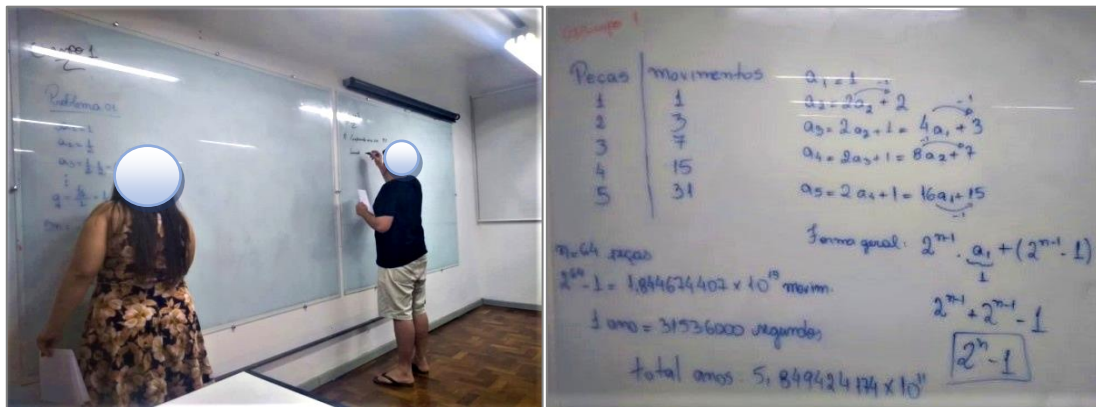 Grupo 1
Problema 01
Grupo 1
Peças movimentos
1 1
2 3
3 7
4 15
5 31
a₁ = 1
a₂ = 2a₂ + 2
a₃ = 2a₂ + 1 = 4a₁ + 3
a₄ = 2a₃ + 1 = 8a₂ + 7
a₅ = 2a₄ + 1 = 16a₁ + 15
Forma geral: 2ⁿ⁻¹ · a₁ + (2ⁿ⁻¹ - 1)
1
2ⁿ⁻¹ + 2ⁿ⁻¹ - 1
2ⁿ - 1
n=64 peças
2⁶⁴ - 1 = 1,844674407 × 10¹⁹ movim.
1 ano = 31536000 segundos
total anos: 5,849424174 × 10¹¹